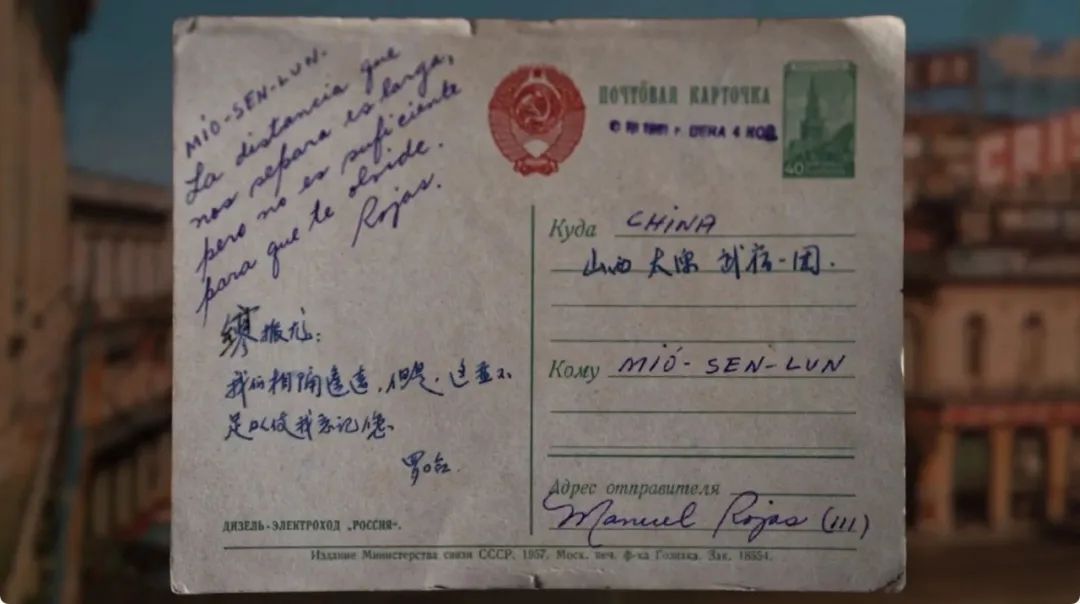 MIÓ-SEN-LUN.
La distancia que
nos separa es larga,
pero no es suficiente
para que te olvide.
Rojas.
缪振龙:
我们相隔遥远,但是,这并不
足以使我忘记您.
罗哈
ДИЗЕЛЬ-ЭЛЕКТРОХОД „РОССИЯ“.
ПОЧТОВАЯ КАРТОЧКА
1961 г. ЦЕНА 4 КОП.
40
Куда CHINA
山西 太原 武宿一团.
Кому MIÓ-SEN-LUN
Адрес отправителя
Manuel Rojas (III)
Издание Министерства связи СССР. 1957. Моск. печ. ф-ка Гознака. Зак. 18554.
CRIS